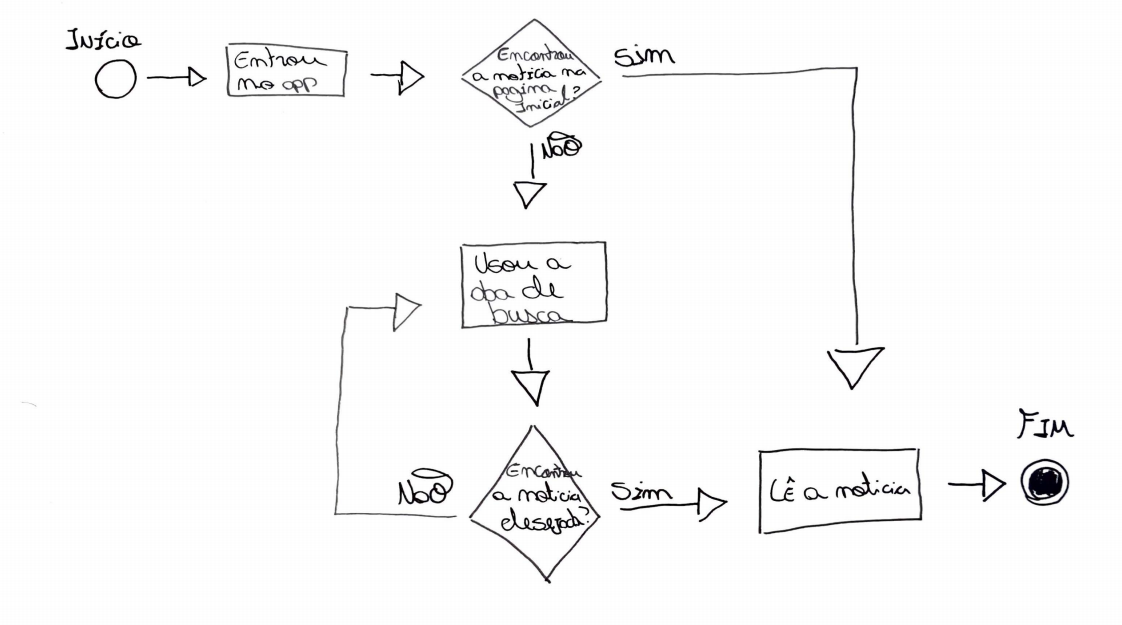 Início
Entrou
no app
Encontrou
a notícia na
pagina
Inicial?
Sim
Não
Usou a
aba de
busca
Encontrou
a noticia
desejada?
Não
Sim
Lê a noticia
FIM